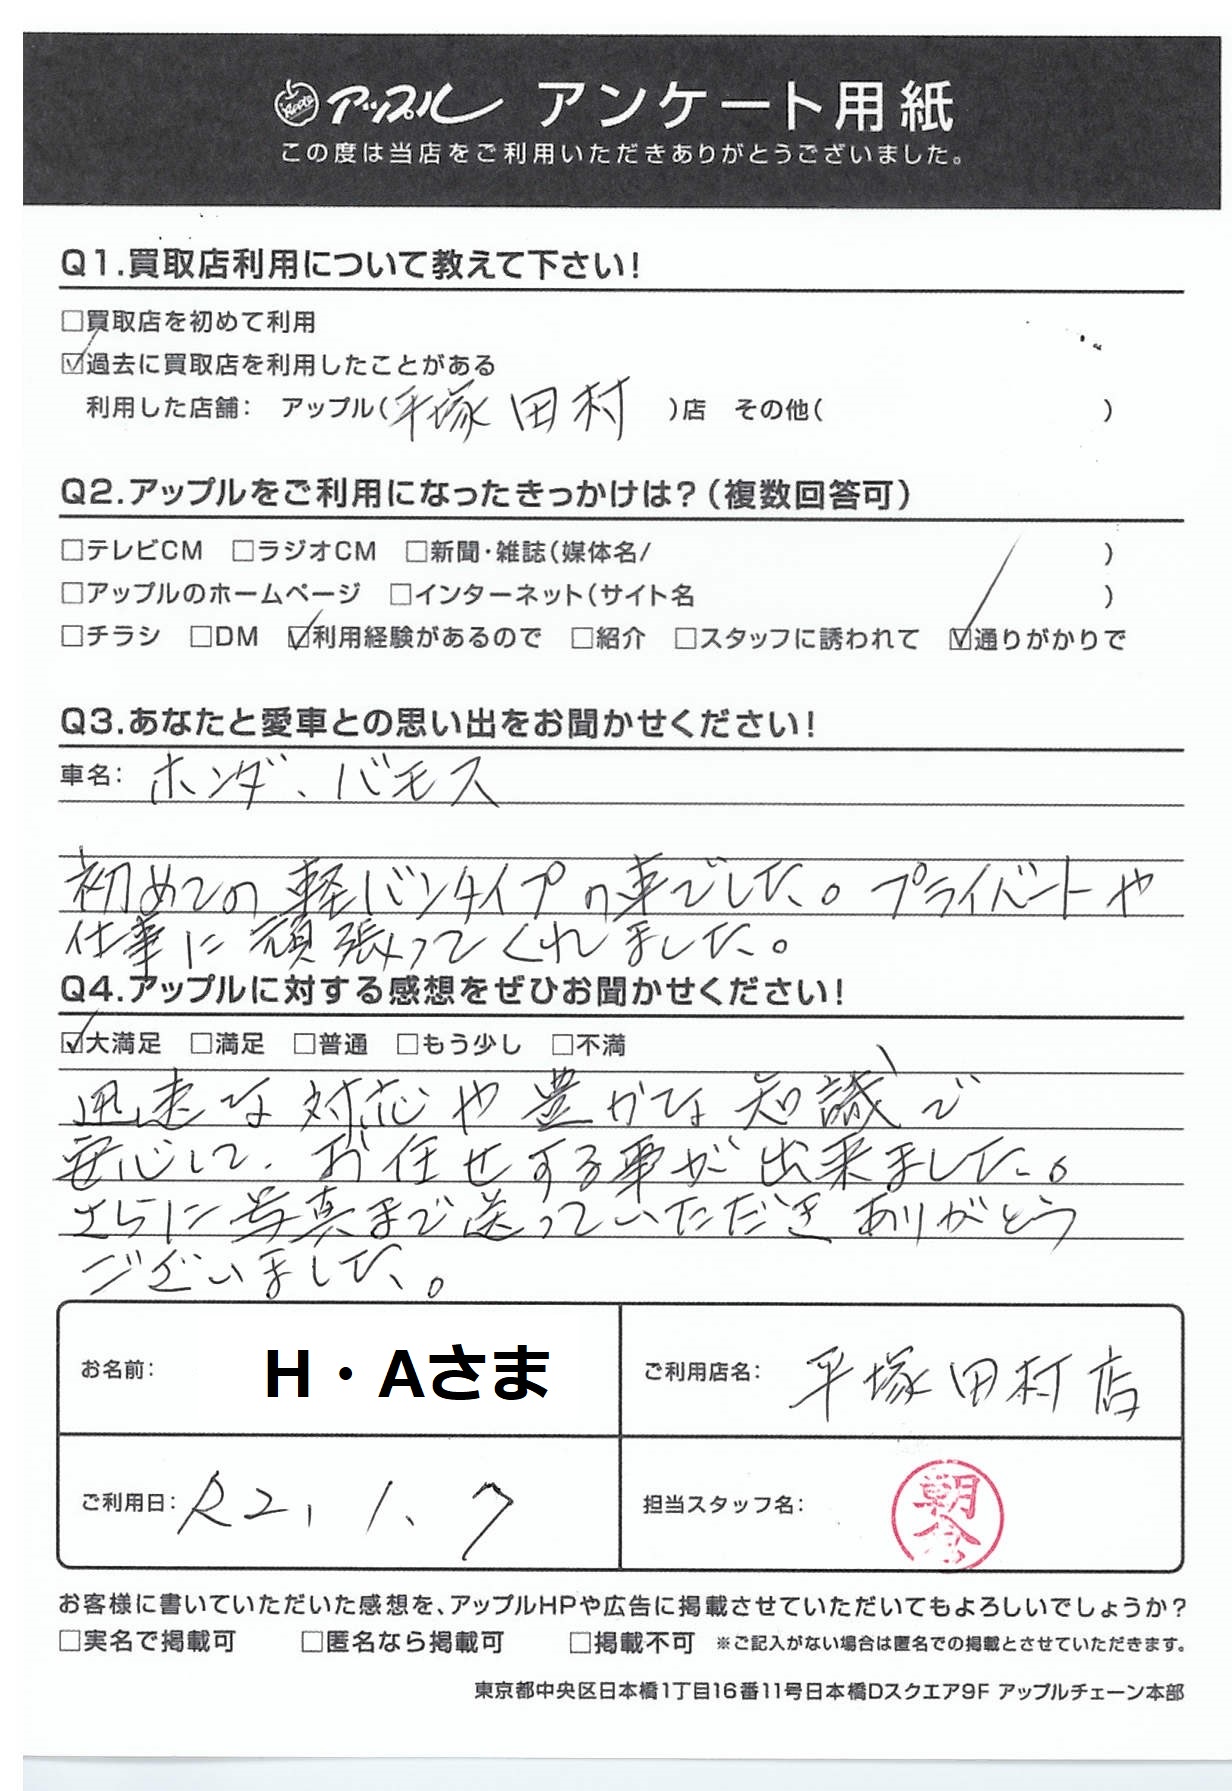 アップル アンケート用紙
この度は当店をご利用いただきありがとうございました。
Q1.買取店利用について教えて下さい!
□買取店を初めて利用
☑過去に買取店を利用したことがある
利用した店舗: アップル(平塚田村)店 その他( )
Q2.アップルをご利用になったきっかけは?(複数回答可)
□テレビCM □ラジオCM □新聞・雑誌(媒体名/ )
□アップルのホームページ □インターネット(サイト名 )
□チラシ □DM ☑利用経験があるので □紹介 □スタッフに誘われて ☑通りがかりで
Q3.あなたと愛車との思い出をお聞かせください!
車名: ホンダ、バモス
初めての軽バンタイプの車でした。プライベートや
仕事に頑張ってくれました。
Q4.アップルに対する感想をぜひお聞かせください!
☑大満足 □満足 □普通 □もう少し □不満
迅速な対応や豊かな知識で
安心して、お任せする事が出来ました。
さらに写真まで送っていただきありがとう
ございました。
お名前: H・Aさま
ご利用店名: 平塚田村店
ご利用日: R2, 1, 7
担当スタッフ名: 朝倉
お客様に書いていただいた感想を、アップルHPや広告に掲載させていただいてもよろしいでしょうか?
□実名で掲載可 □匿名なら掲載可 □掲載不可 ※ご記入がない場合は匿名での掲載とさせていただきます。
東京都中央区日本橋1丁目16番11号日本橋Dスクエア9F アップルチェーン本部